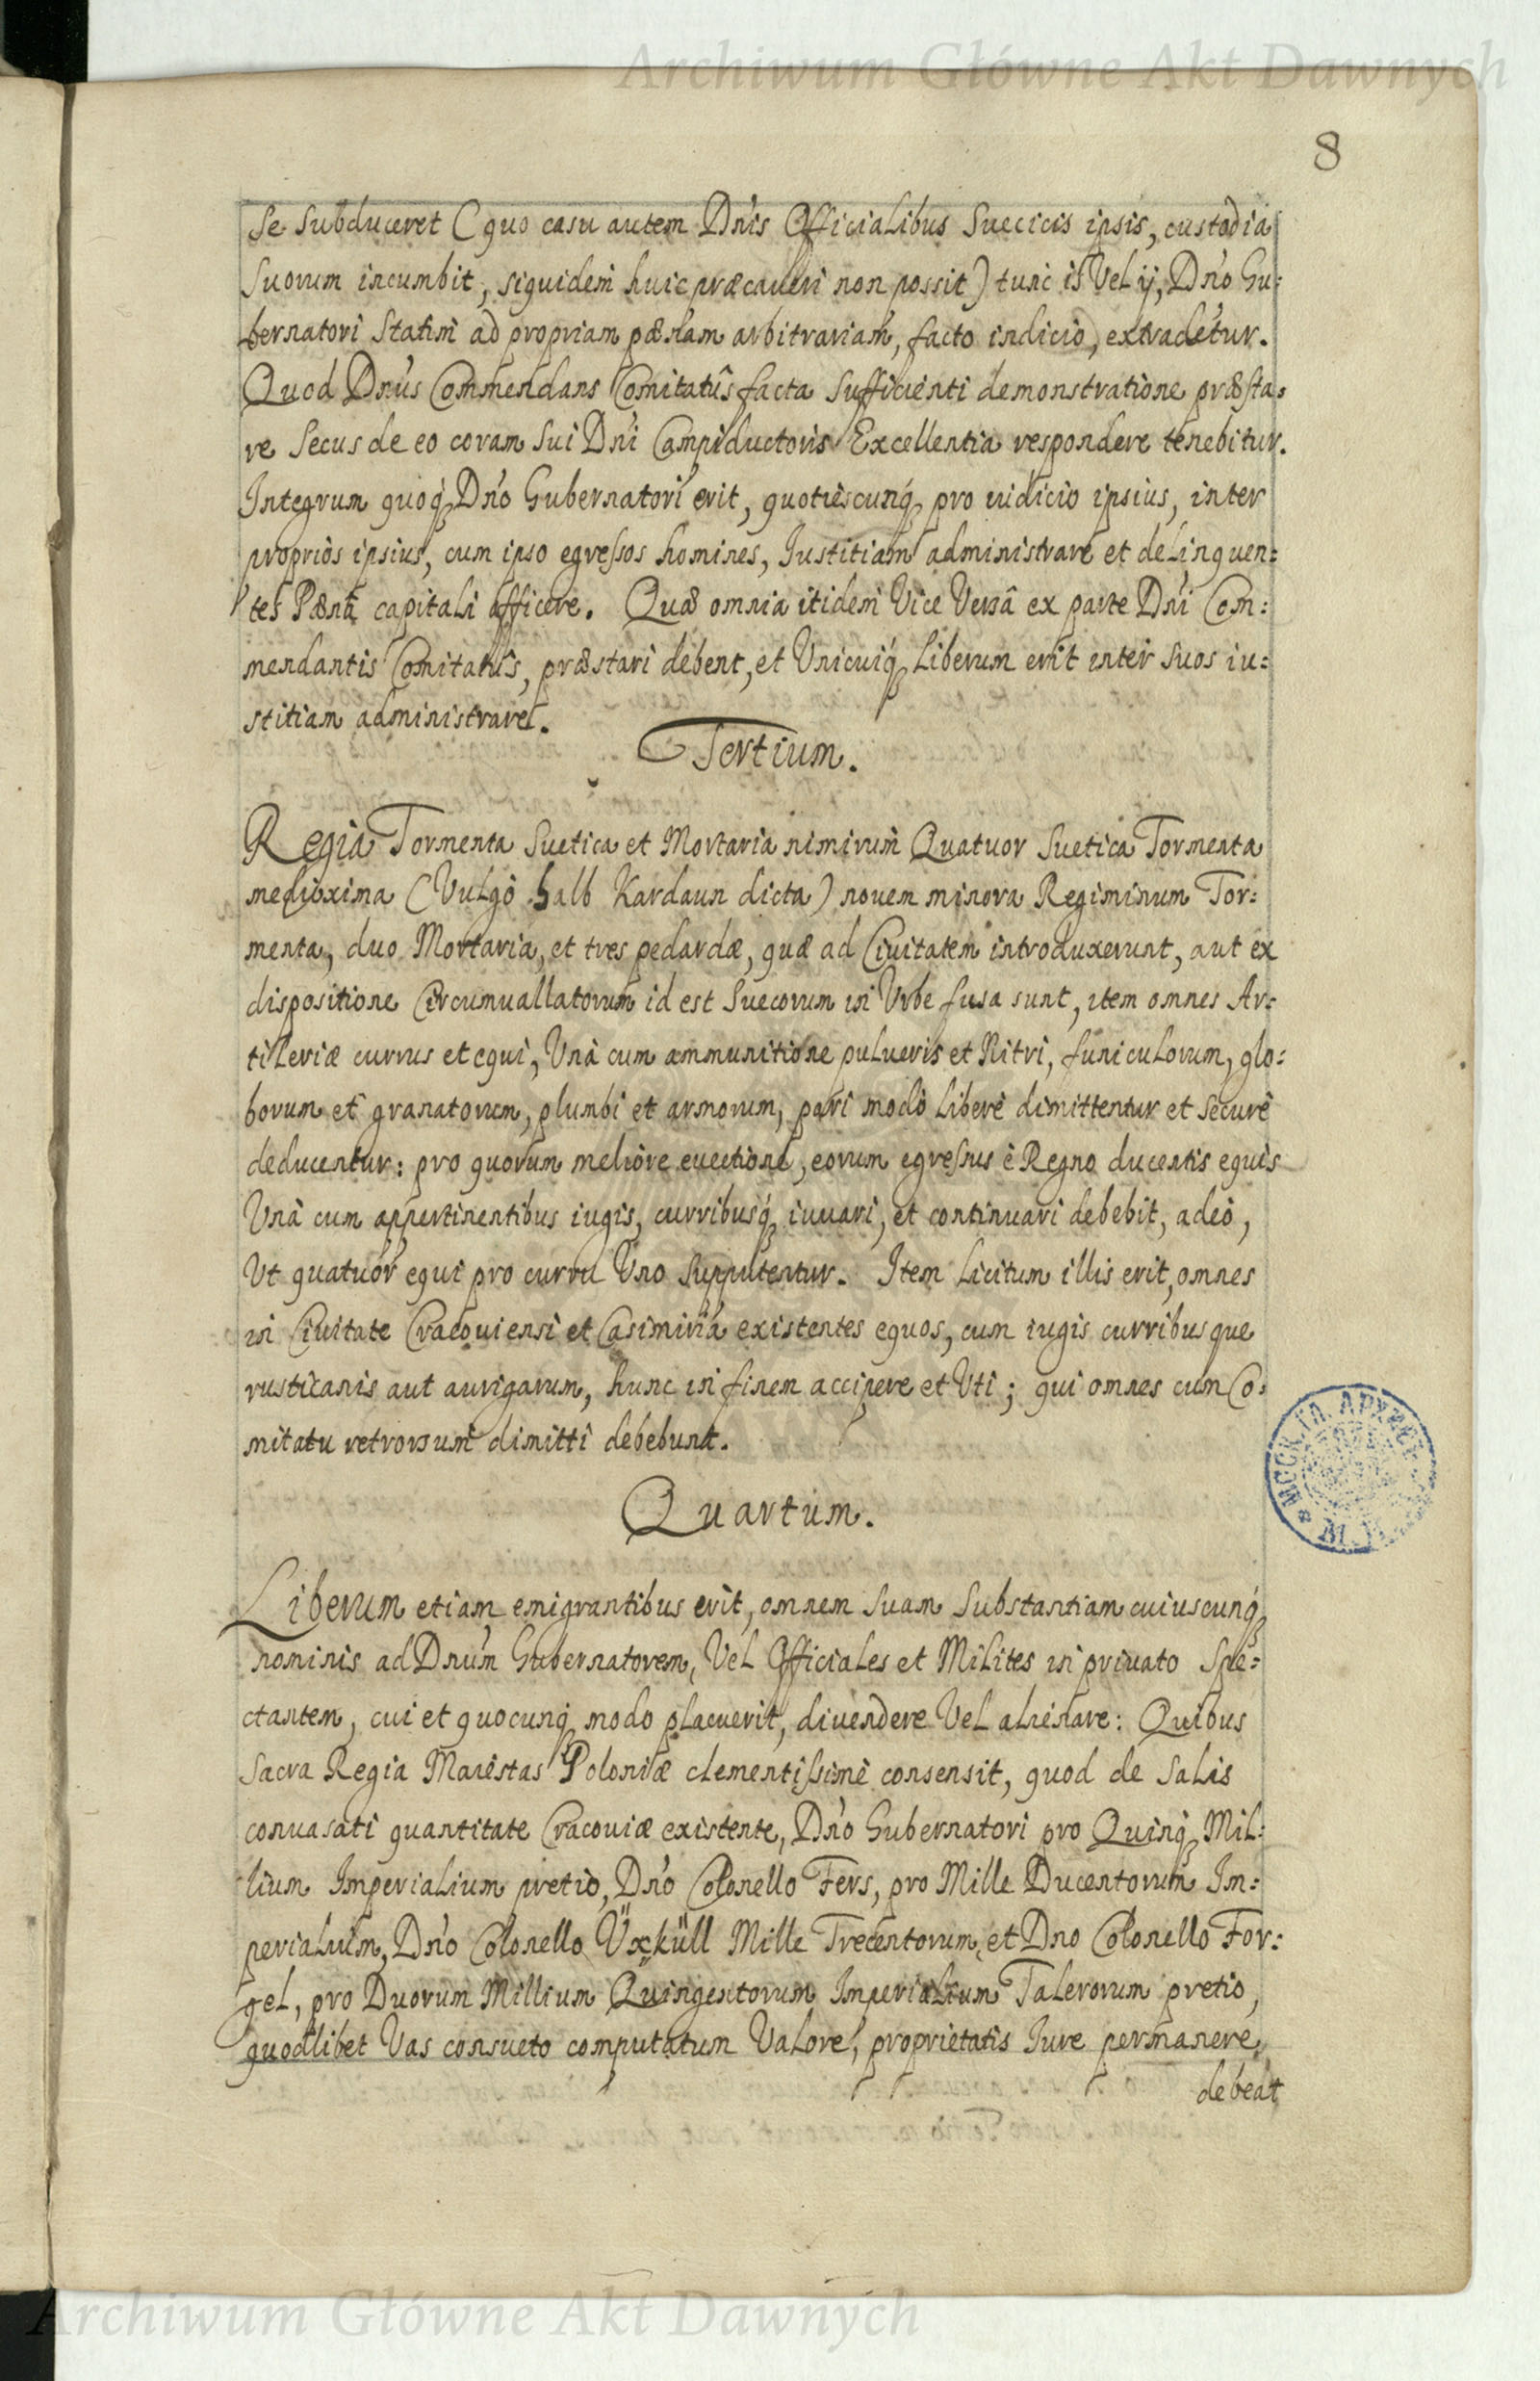 Archiwum Główne Akt Dawnych
8
se subduceret (quo casu autem Dnis Officialibus Suecicis ipsis, custodia
suorum incumbit, siquidem huic præcaveri non possit) tunc is vel ij, Dno Gu:
bernatori statim ad propriam pænam arbitrariam, facto indicio, extradetur.
Quod Dnus Commendans Comitatûs facta sufficienti demonstratione præsta:
re secus de eo coram sui Dni Campiductoris Excellentia respondere tenebitur.
Integrum quoq Dno Gubernatori erit, quotiescunq pro iudicio ipsius, inter
proprios ipsius, cum ipso egressos homines, Iustitiam administrare et delinquen:
tes Pæna capitali afficere. Quæ omnia itidem Vice Versâ ex parte Dni Com:
mendantis Comitatûs, præstari debent, et Unicuiq Liberum erit inter suos iu:
stitiam administrare.
Tertium.
Regia Tormenta Suetica et Mortaria nimirum Quatuor Suetica Tormenta
medioxima (Vulgò halb Kardaun dicta) novem minora Regiminum Tor:
menta, duo Mortaria, et tres pedardæ, quæ ad Civitatem introduxerunt, aut ex
dispositione Circumuallatorum id est Suecorum in Vrbe fusa sunt, item omnes Ar:
tileriæ currus et equi, Unà cum ammunitione pulueris et Nitri, funiculorum, glo:
borum et granatorum, plumbi et armorum, pari modò liberè dimittentur et securè
deducentur: pro quorum meliore euectione, eorum egressus è Regno ducentis equis
Unà cum appertinentibus iugis, curribusq iuuari, et continuari debebit, adeò,
Vt quatuor equi pro curru Uno supputentur. Item Licitum illis erit, omnes
in Ciuitate Cracouiensi et Casimiriâ existentes equos, cum iugis curribusque
rusticanis aut aurigarum, hunc in finem accipere et Uti; qui omnes cum Co:
mitatu retrorsum dimitti debebunt.
Quartum.
Liberum etiam emigrantibus erit, omnem suam substantiam cuiuscunq
nominis ad Dnum Gubernatorem, Vel Officiales et Milites in priuato Spe:
ctantem, cui et quocunq modo placuerit, diuendere Vel alienare: Quibus
Sacra Regia Maiestas Poloniæ clementissimè consensit, quod de Salis
conuasati quantitate Cracouiæ existente, Dno Gubernatori pro Quinq Mil:
lium Imperialium pretio, Dno Colonello Fers, pro Mille Ducentorum Im:
perialium, Dno Colonello Üxküll Mille Trecentorum, et Dno Colonello For:
gel, pro Duorum Millium Quingentorum Imperialium Talerorum pretio,
quodlibet Vas consueto computatum Valore, proprietatis Iure permanere
debeat
Archiwum Główne Akt Dawnych